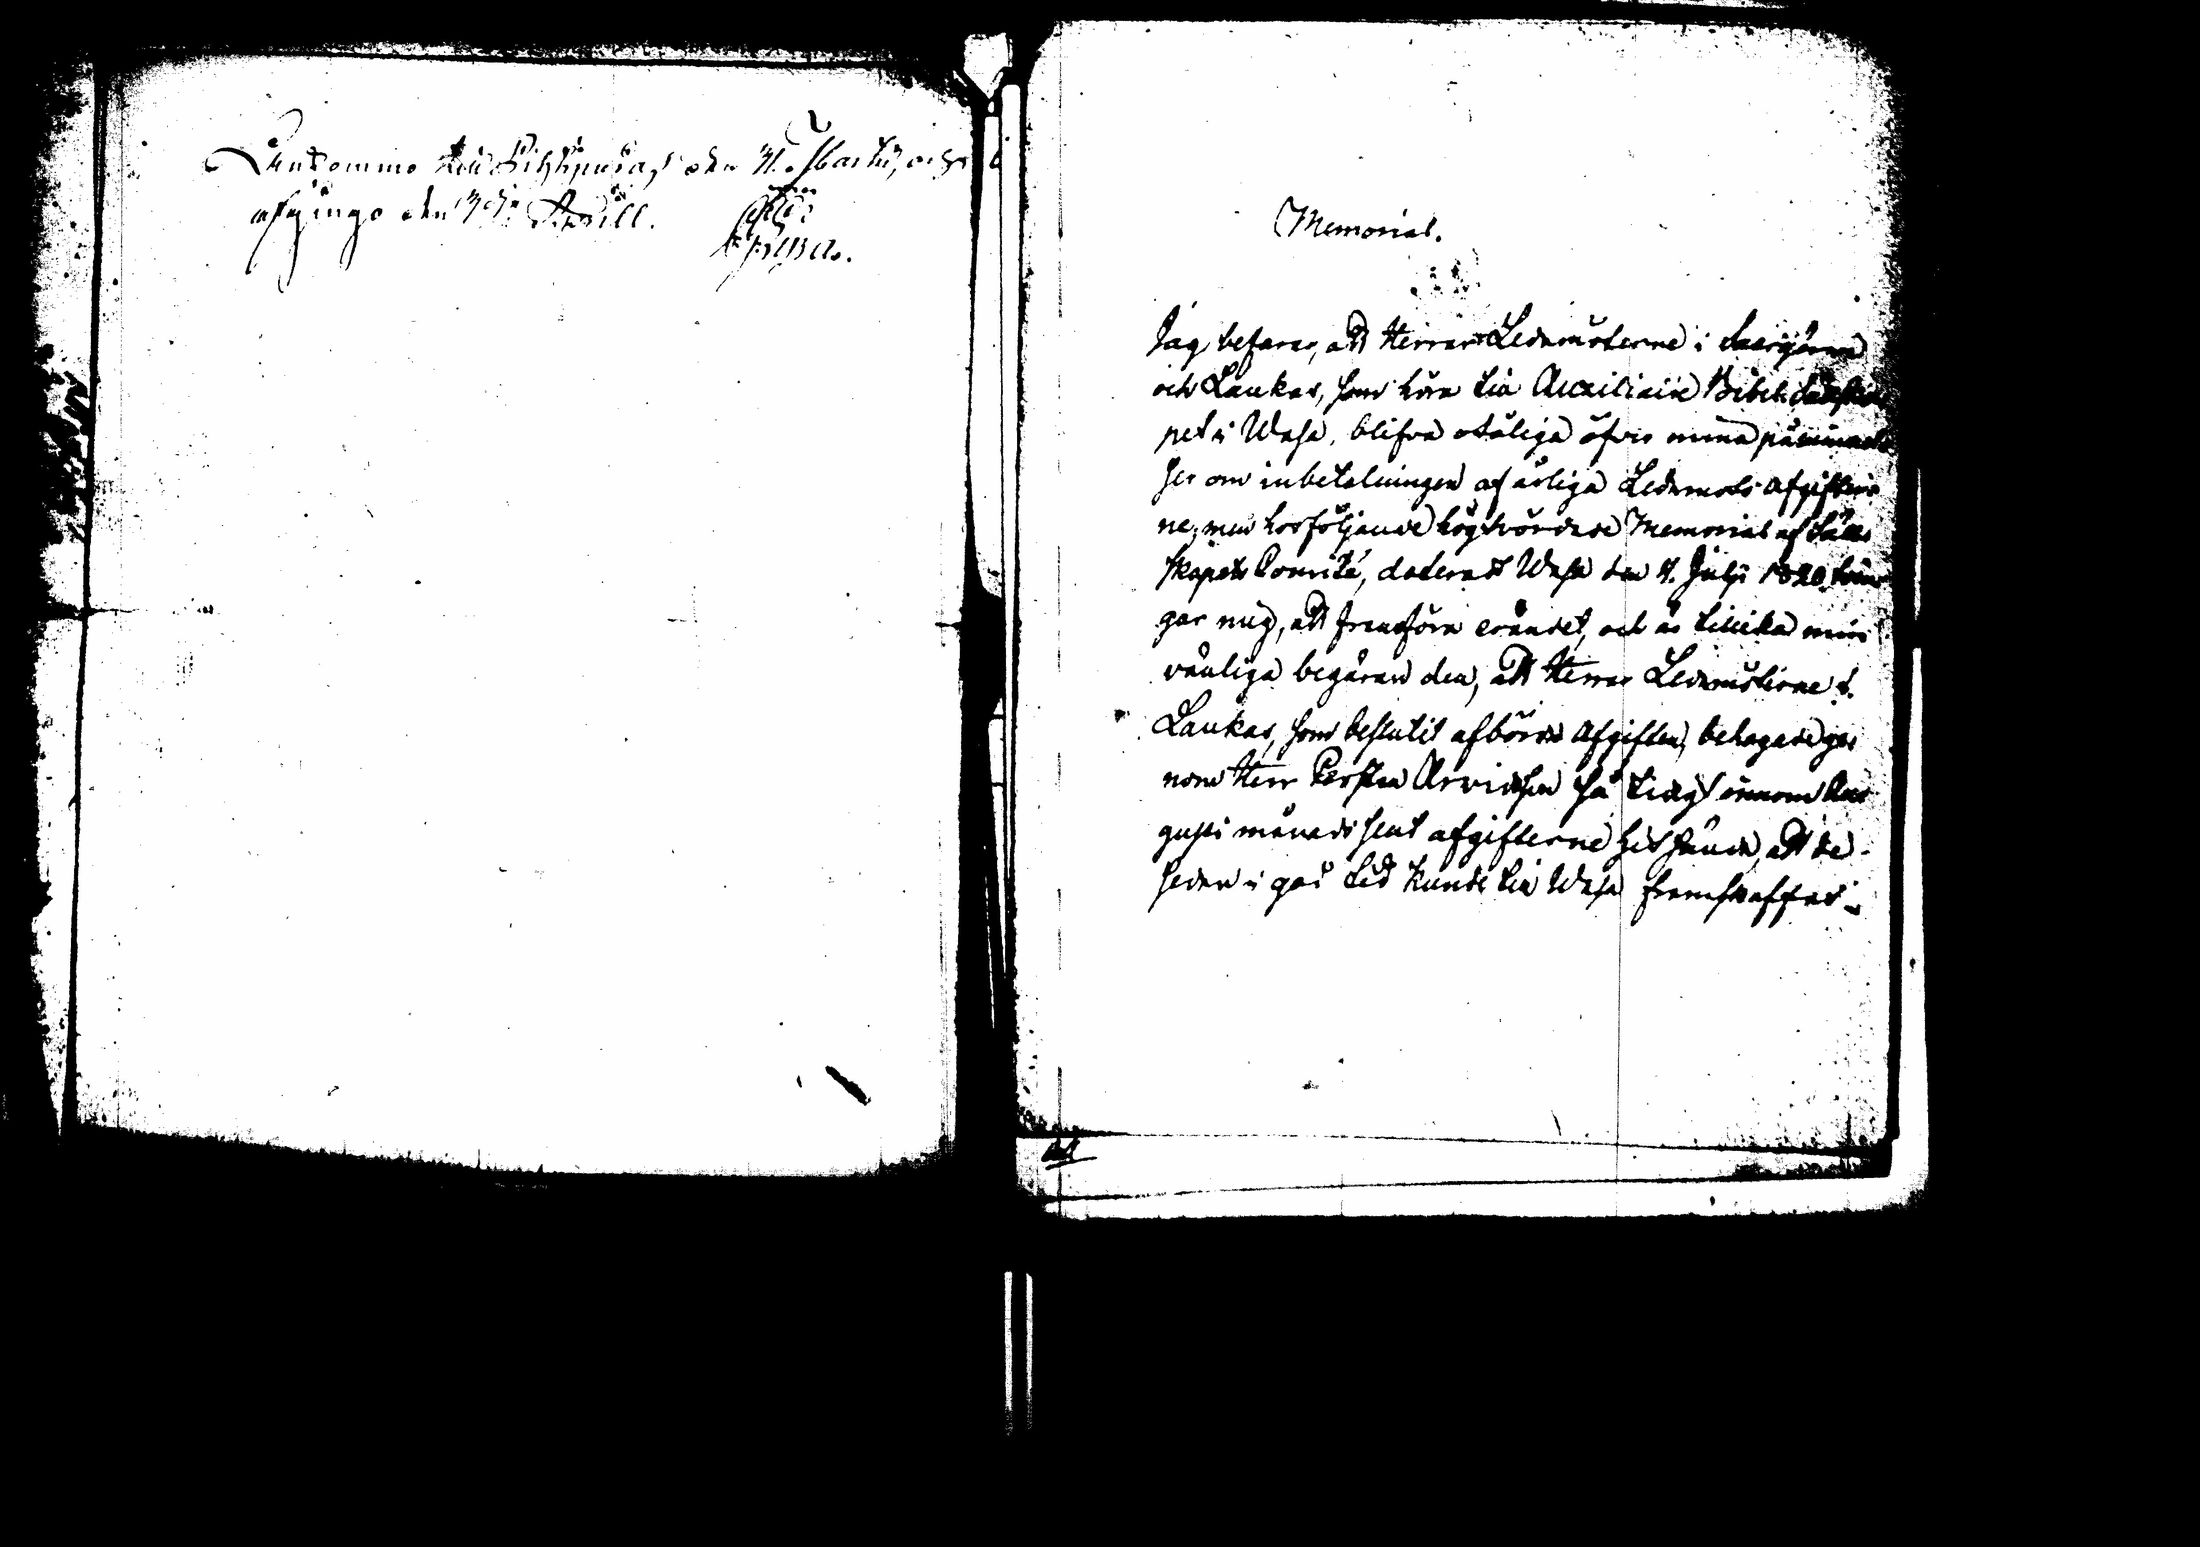 Ankommo till Pihtipudas den 31. Martii, och
afgingo den 3dje Aprill.
Memorial.
Jag befarar, att Herrar Ledamöterne i Saarijärvi
och Laukas, som höra till Auxiliaire Bibel Sällska
pet i Wasa, blifva otåliga öfver mina påminnel
ser om inbetalningen af årliga Ledamots Afgifter
ne, men hosföljande högtvördade Memorial af Säll
skapets Comité, dateradt Wasa den 4. Julii 1820 tvin
gar mig, att framföra ärendet, och är tillika min
vänliga begäran den, att Herrar Ledamöterne i
Laukas, som beslutit afbörda Afgiften, behagade ge
nom Herr Arvidsson så tidigt innom Au
gusti månads slut afgifterne hitsända, att de
sedan i god tid kunde till Wasa framskaffas.